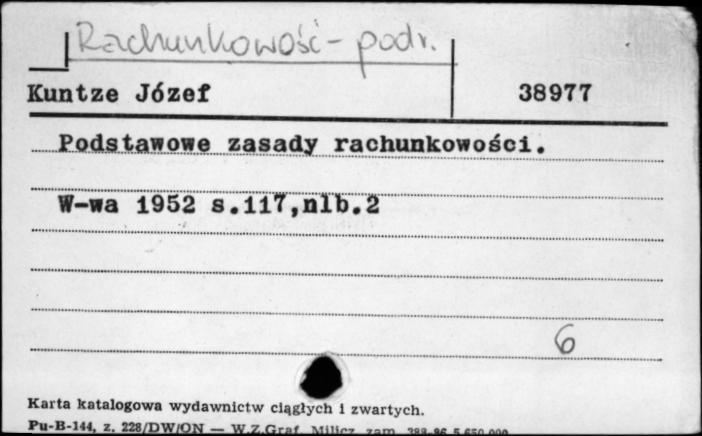 Rachunkowość - podr.
Kuntze Józef 38977
Podstawowe zasady rachunkowości.
W-wa 1952 s.117,nlb.2
6
Karta katalogowa wydawnictw ciągłych i zwartych.
Pu-B-144, z. 228/DW/ON — W.Z.Graf. Milicz zam.